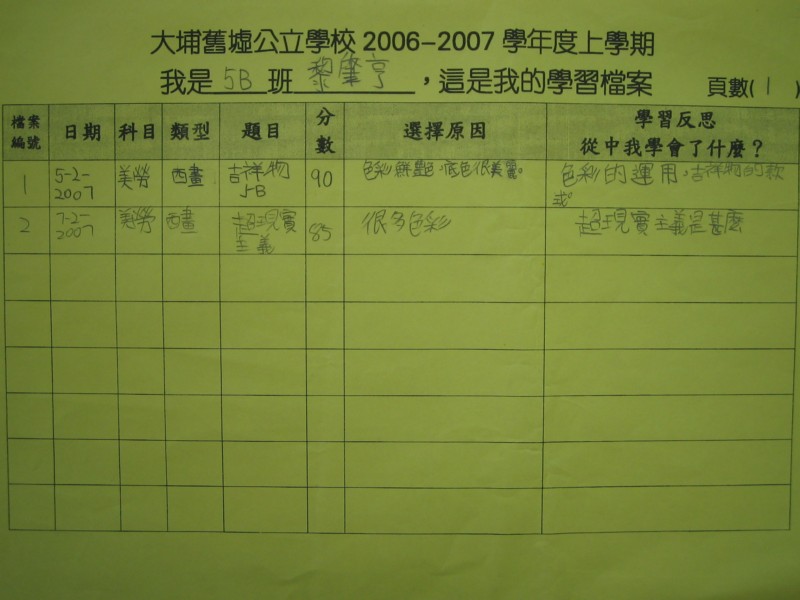 大埔舊墟公立學校 2006-2007 學年度上學期
我是 5B 班 黎肇亨 ，這是我的學習檔案 頁數( 1 )
檔案編號 日期 科目 類型 題目 分數 選擇原因 學習反思
從中我學會了什麼？
1 5-2-2007 美勞 西畫 吉祥物 5B 90 色彩鮮艷,底色很美麗。 色彩的運用,吉祥物的款式
2 7-2-2007 美勞 西畫 超現實主義 85 很多色彩 超現實主義是甚麼